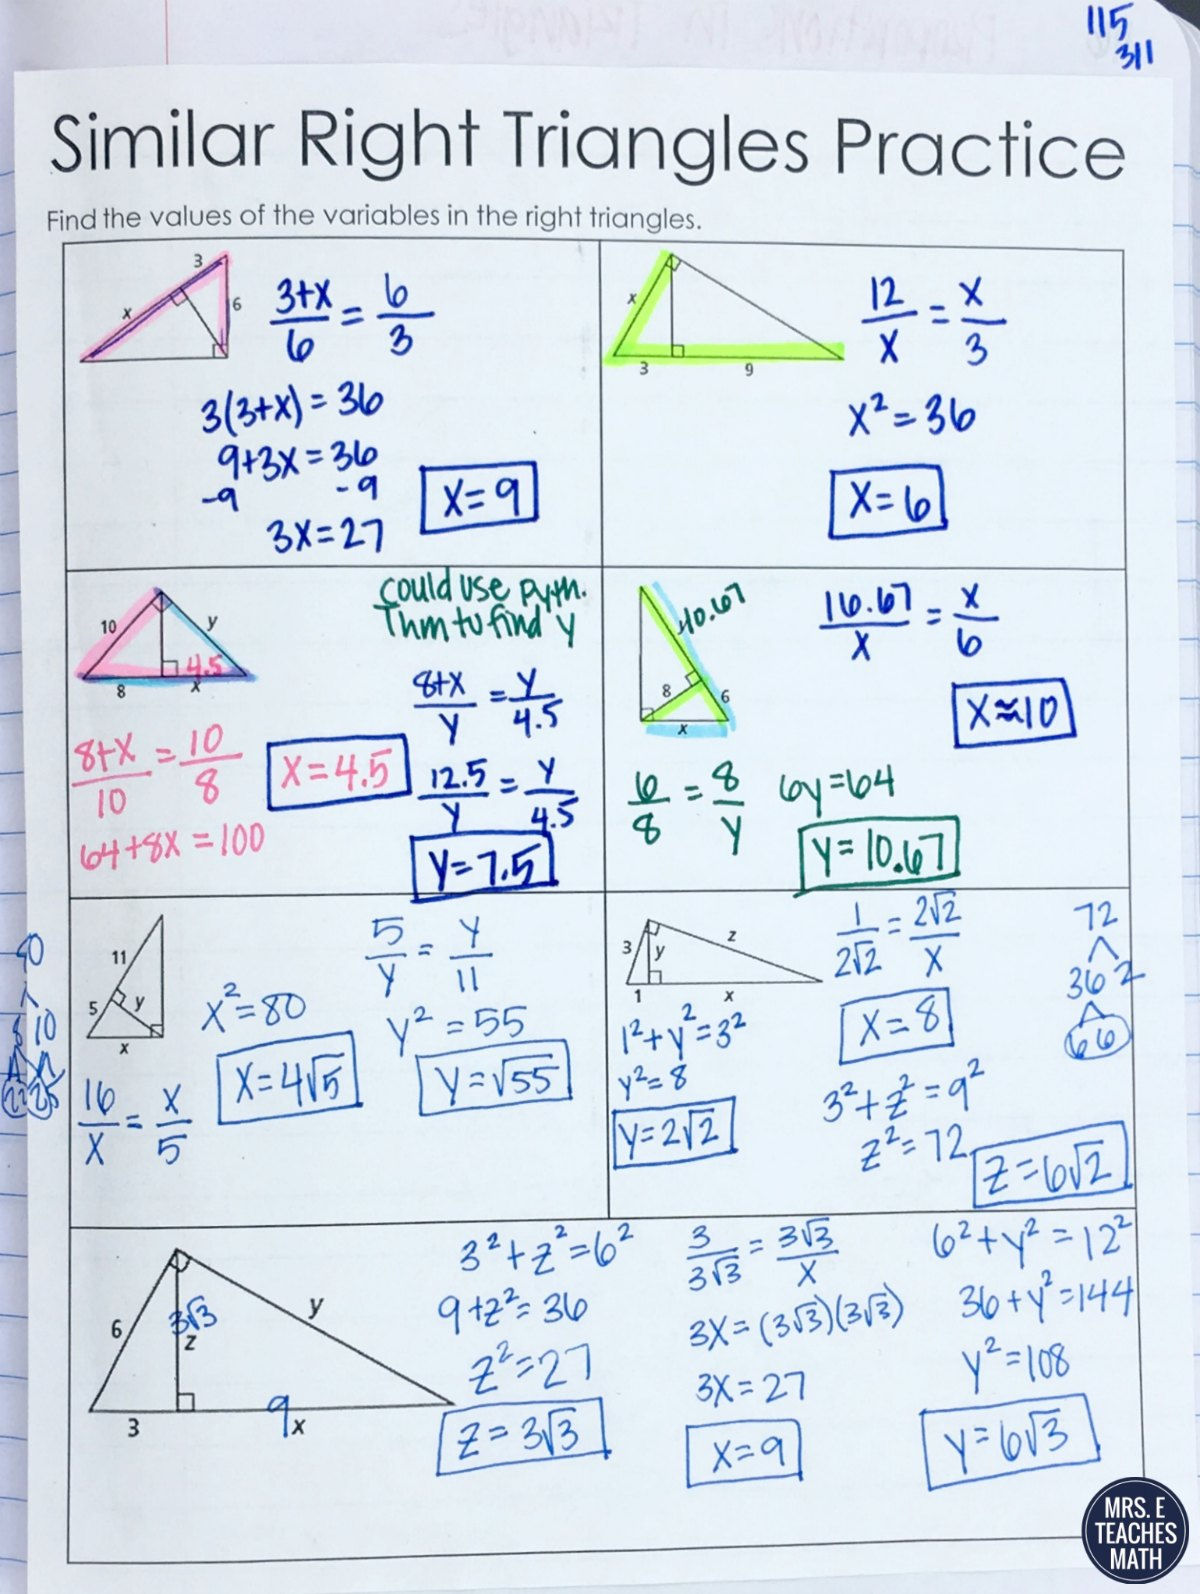 115
311
Similar Right Triangles Practice
Find the values of the variables in the right triangles.
3
x
6
3+x/6 = 6/3
3(3+x) = 36
9+3x = 36
-9 -9
3x = 27
x = 9
x
3
9
12/x = x/3
x² = 36
x = 6
could use pyth.
Thm to find y
10
y
4.5
8
x
8+x/10 = 10/8
64+8x = 100
x = 4.5
8+x/y = y/4.5
12.5/y = y/4.5
y = 7.5
10.67
8
6
x
16.67/x = x/6
x ≈ 10
6/8 = 8/y
6y = 64
y = 10.67
11
5
y
x
16/x = x/5
x² = 80
x = 4√5
5/y = y/11
y² = 55
y = √55
8 10
3
y
z
1
x
1² + y² = 3²
y² = 8
y = 2√2
1/2√2 = 2√2/x
x = 8
3² + z² = 9²
z² = 72
z = 6√2
72
36 2
6 6
6
3√3
z
y
3
9
x
3² + z² = 6²
9 + z² = 36
z² = 27
z = 3√3
3/3√3 = 3√3/x
3x = (3√3)(3√3)
3x = 27
x = 9
6² + y² = 12²
36 + y² = 144
y² = 108
y = 6√3
MRS. E
TEACHES
MATH